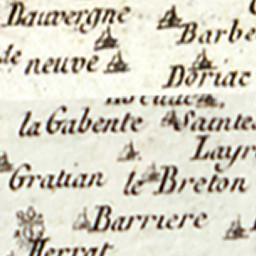 Dauvergne
Barbe
de neuve
Doriac
la Gabente Saintes
Layr
Gratian le Breton
Barriere
Herrat